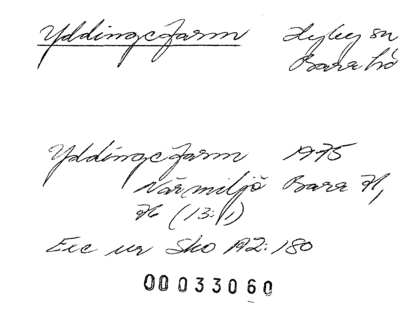 Yddingefarm Hyby sn
Bara hd
Yddingefarm 1975
Närmiljö Bara H,
H (13:1)
Exc ur Sko A2:180
00033060